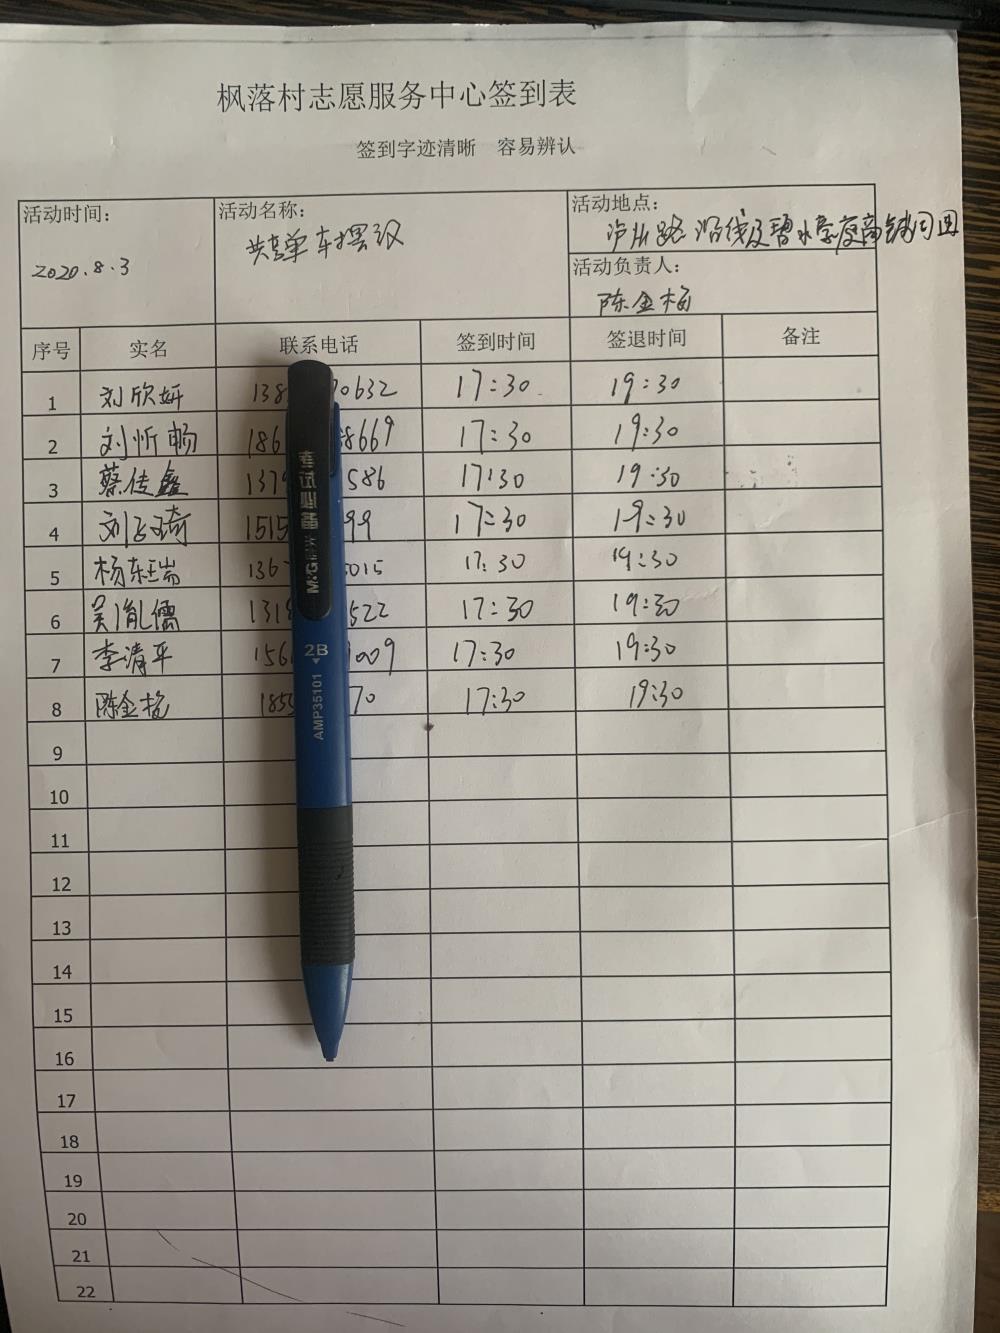 枫落村志愿服务中心签到表
签到字迹清晰 容易辨认
活动时间： 活动名称： 活动地点：
2020.8.3 共享单车摆放 泸州路沿线及碧水豪庭商铺周围
活动负责人：
陈金梅
序号 实名 联系电话 签到时间 签退时间 备注
1 刘欣妍 138 70632 17:30 19:30
2 刘忻畅 186 8669 17:30 19:30
3 蔡佳鑫 137 586 17:30 19:30
4 1515 99 17:30 19:30
5 杨东瑞 136 5015 17:30 19:30
6 吴胤儒 1318 522 17:30 19:30
7 李清平 156 1009 17:30 19:30
8 陈金梅 185 70 17:30 19:30
9
10
11
12
13
14
15
16
17
18
19
20
21
22
考试必备
M&G晨光
2B
AMP35101